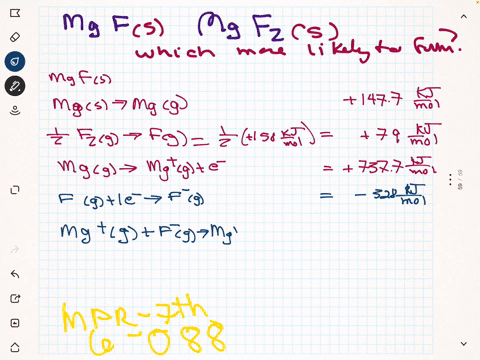 MgF(s) MgF2(s)
which more likely to form?
MgF(s)
Mg(s) → Mg(g) +147.7 kJ/mol
1/2 F2(g) → F(g) = 1/2 (+158 kJ/mol) = +79 kJ/mol
Mg(g) → Mg+(g) + e- = +737.7 kJ/mol
F(g) + 1e- → F-(g) = -328 kJ/mol
Mg+(g) + F-(g) → Mg
MPR-7th
6-088